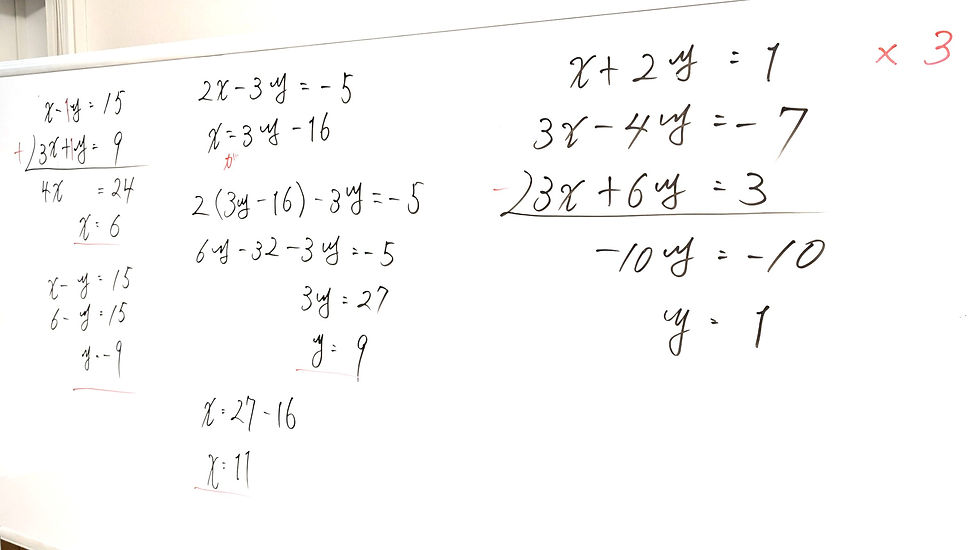 x-1y=15
+)3x+1y=9
4x =24
x=6
x-y=15
6-y=15
y=-9
2x-3y=-5
x=3y-16
2(3y-16)-3y=-5
6y-32-3y=-5
3y=27
y=9
x=27-16
x=11
x+2y=1 ×3
3x-4y=-7
-)3x+6y=3
-10y=-10
y=1